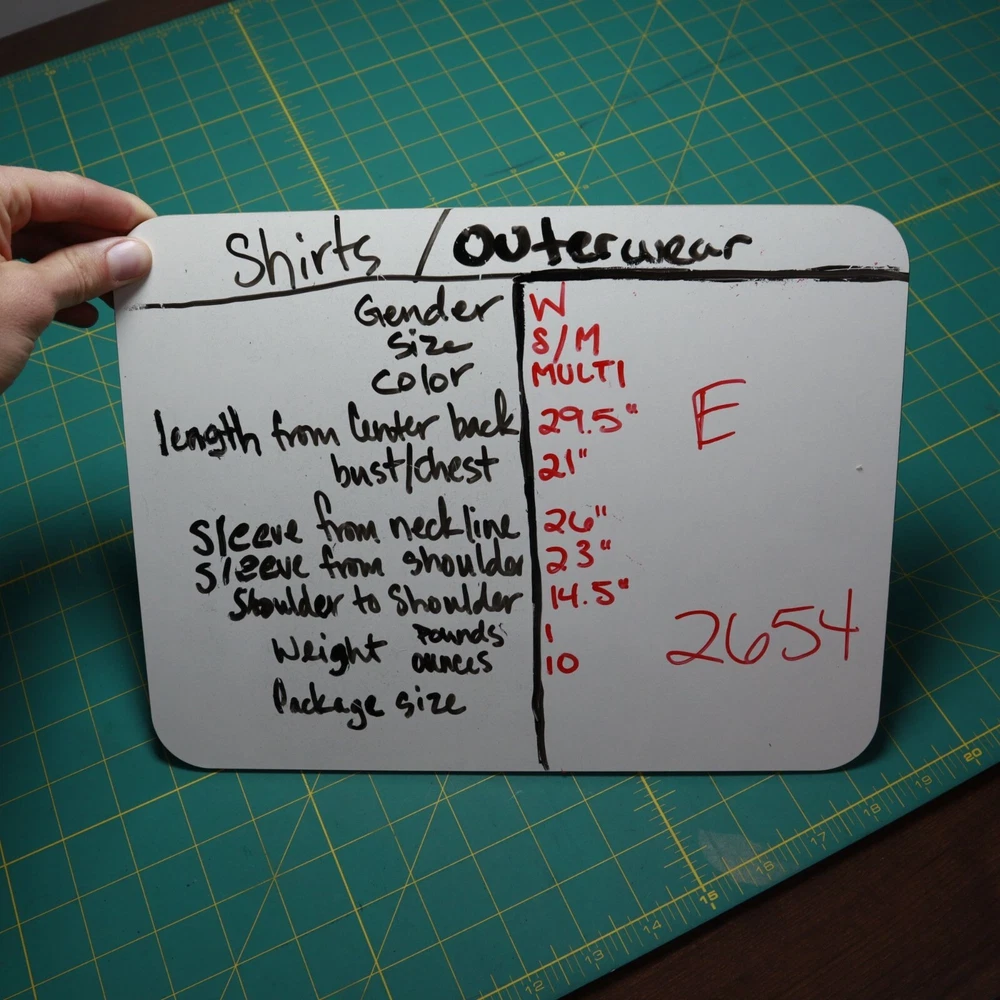 Shirts / Outerwear
Gender W
Size S/M
Color MULTI
length from Center back 29.5" E
bust/chest 21"
Sleeve from neckline 26"
Sleeve from shoulder 23"
Shoulder to Shoulder 14.5"
Weight Pounds 1
ounces 10
2654
Package size
12 13 14 15 16 17 18 19 20